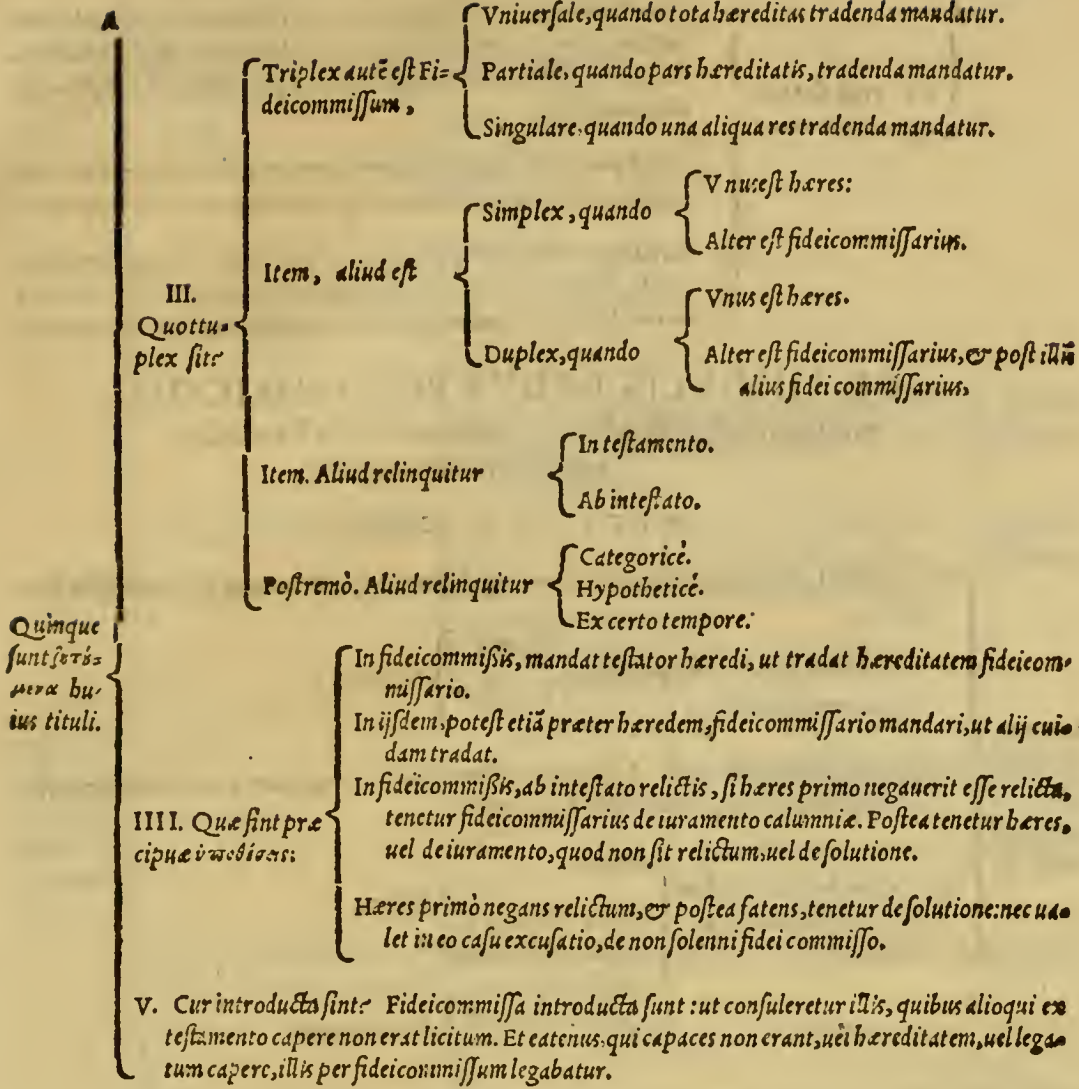 A
Vniuersale, quando tota hæreditas tradenda mandatur.
Triplex autē est Fi=
deicommissum,
Partiale, quando pars hæreditatis, tradenda mandatur.
Singulare, quando una aliqua res tradenda mandatur.
III.
Quottu-
plex sit?
Item, aliud est
Simplex, quando
Vnus est hæres:
Alter est fideicommissarius.
Duplex, quando
Vnus est hæres.
Alter est fideicommissarius, & post illū
alius fidei commissarius,
Item. Aliud relinquitur
In testamento.
Ab intestato.
Postremò. Aliud relinquitur
Categoricè.
Hypotheticè.
Ex certo tempore.
Quinque
sunt ζητό-
μενα hu-
ius tituli.
In fideicommißis, mandat testator hæredi, ut tradat hæreditatem fideicom-
missario.
In ijsdem, potest etiā præter hæredem, fideicommissario mandari, ut alij cui-
dam tradat.
IIII. Quæ sint præ
cipuæ ὑποθέσεις:
In fideicommißis, ab intestato relictis, si hæres primo negauerit esse relicta,
tenetur fideicommissarius de iuramento calumniæ. Postea tenetur hæres,
uel de iuramento, quod non sit relictum, uel de solutione.
Hæres primò negans relictum, & postea fatens, tenetur de solutione: nec ua-
let in eo casu excusatio, de non solenni fidei commisso.
V. Cur introducta sint? Fideicommissa introducta sunt: ut consuleretur illis, quibus alioqui ex
testamento capere non erat licitum. Et eatenus, qui capaces non erant, uel hæreditatem, uel lega-
tum capere, illis per fideicommissum legabatur.